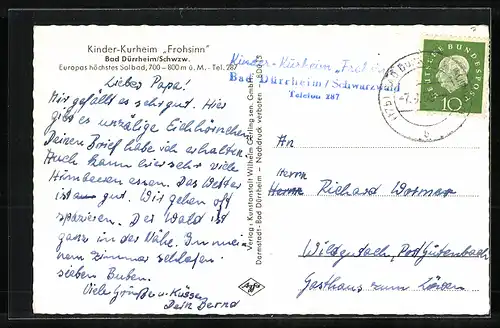 Kinder-Kurheim „Frohsinn“
Bad Dürrheim/Schwzw.
Europas höchstes Solbad, 700 - 800 m ü. M. - Tel. 287
Liebes Papa!
Mir gefällt es sehr gut. Hier
gibt es unzälige Eichhörnchen.
Deinen Brief habe ich erhalten
Auch kann hier sehr viele
Himbeeren essen. Das Wetter
ist gut. Wir gehen oft
spazieren. Der Wald ist
ganz in der Nähe. In mei-
nem Zimmer schlafen
sieben Buben.
Viele Grüße u. Küsse
Dein Bernd
Verlag: Kunstanstalt Wilhelm Gerling sen. GmbH,
Darmstadt-Bad Dürrheim - Nachdruck verboten -
Agfa
Kinder-Kurheim „Frohsinn“
Bad Dürrheim/Schwarzwald
Telefon 287
DEUTSCHE BUNDESPOST
10
b
An
Herrn
Herrn Richard Wormer
Wildgutach, Post Gütenbach
Gasthaus zum Löwen